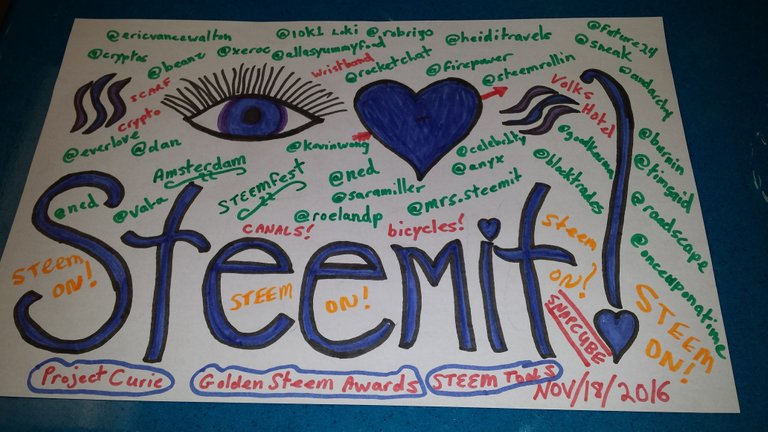 @ericvancewalton
@l0k1 Loki
@robrigo
@heiditravels
@future24
@cryptos
@beanz
@xeroc
@allasyummyfood
wristband
@rocketchat
@firepower
@steemrollin
@sneak
@andarchy
SCARF
Crypto
Volks
Hotel
@everlove
@dan
@kevinwong
@celebr1ty
@anyx
@goodkarma
@burnin
@tinguid
Amsterdam
STEEMfest
@ned
@saramiller
@mrs.steemit
@roelandp
@blocktrades
@roadscape
@ned
@vata
CANALS!
bicycles!
@onceuponatime
Steemit!
STEEM
ON!
STEEM ON!
Steem
ON!
STEEM
ON!
SNAPCUBE
Project Curie
Golden Steem Awards
STEEM Tools
NOV/18/2016